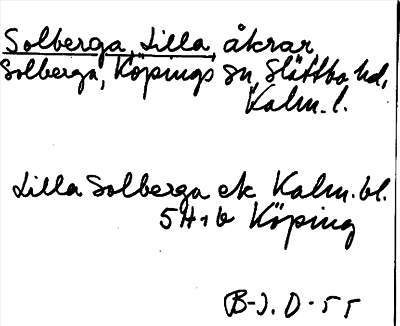 Solberga, Lilla, åkrar
Solberga, Köpings sn, Slättbo hd,
Kalm. l.
Lilla Solberga ek Kalm. bl.
5H1b Köping
B-J. D-55